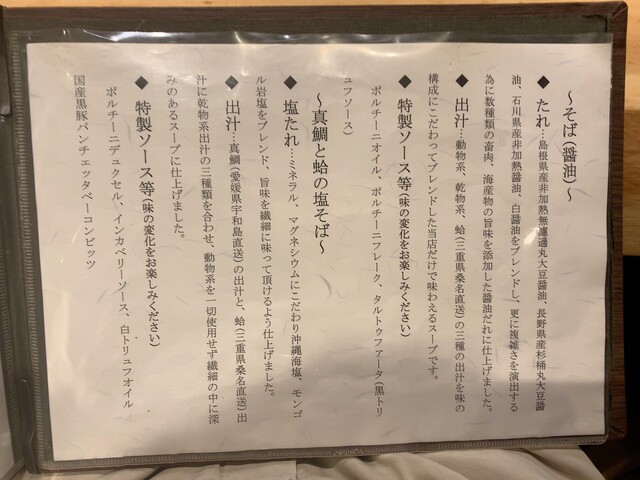 ～そば（醤油）～
◆ たれ…島根県産非加熱無濾過丸大豆醤油、長野県産杉桶丸大豆醤
油、石川県産非加熱醤油、白醤油をブレンドし、更に複雑さを演出する
為に数種類の畜肉、海産物の旨味を添加した醤油だれに仕上げました。
◆ 出汁…動物系、乾物系、蛤（三重県桑名直送）の三種の出汁を味の
構成にこだわってブレンドした当店だけで味わえるスープです。
◆ 特製ソース等（味の変化をお楽しみください）
ポルチーニオイル、ポルチーニフレーク、タルトゥファータ（黒トリ
ュフソース）
～真鯛と蛤の塩そば～
◆ 塩たれ…ミネラル、マグネシウムにこだわり沖縄海塩、モンゴ
ル岩塩をブレンド、旨味を繊細に味って頂けるよう仕上げました。
◆ 出汁…真鯛（愛媛県宇和島直送）の出汁と、蛤（三重県桑名直送）出
汁に乾物系出汁の三種類を合わせ、動物系を一切使用せず繊細の中に深
みのあるスープに仕上げました。
◆ 特製ソース等（味の変化をお楽しみください）
ポルチーニデュクセル、インカベリーソース、白トリュフオイル
国産黒豚パンチェッタベーコンビッツ